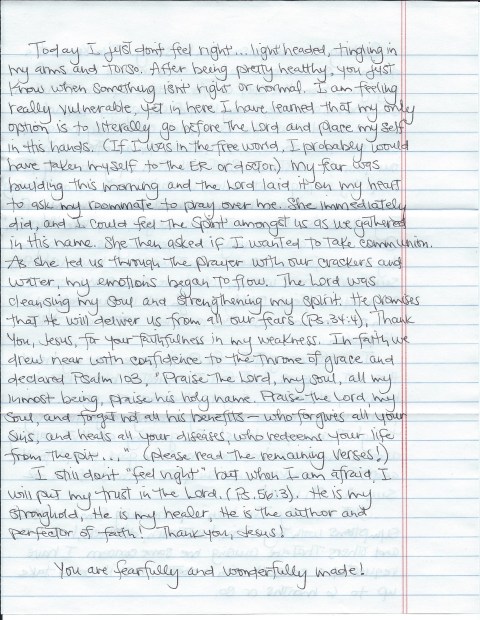 Today I just don't feel right... light headed, tingling in
my arms and torso. After being pretty healthy, you just
know when something isn't right or normal. I am feeling
really vulnerable, yet in here I have learned that my only
option is to literally go before the Lord and place my self
in His hands. (If I was in the free world, I probably would
have taken myself to the ER or doctor.) My fear was
building this morning and the Lord laid it on my heart
to ask my roommate to pray over me. She immediately
did, and I could feel the Spirit amongst us as we gathered
in His name. She then asked if I wanted to take communion.
As she led us through the prayer with our crackers and
water, my emotions began to flow. The Lord was
cleansing my soul and strengthening my spirit. He promises
that He will deliver us from all our fears (Ps. 34:4), Thank
You, Jesus, for your faithfulness in my weakness. In faith, we
drew near with confidence to the throne of grace and
declared Psalm 103, "Praise the Lord, my soul, all my
inmost being, praise his holy name. Praise the Lord my
soul, and forget not all his benefits - who forgives all your
sins, and heals all your diseases, who redeems your life
from the pit..." (please read the remaining verses!)
I still don't "feel right" but when I am afraid, I
will put my trust in the Lord. (Ps. 56:3). He is my
stronghold, He is my healer, He is the author and
perfector of faith! Thank you, Jesus!
You are fearfully and wonderfully made!